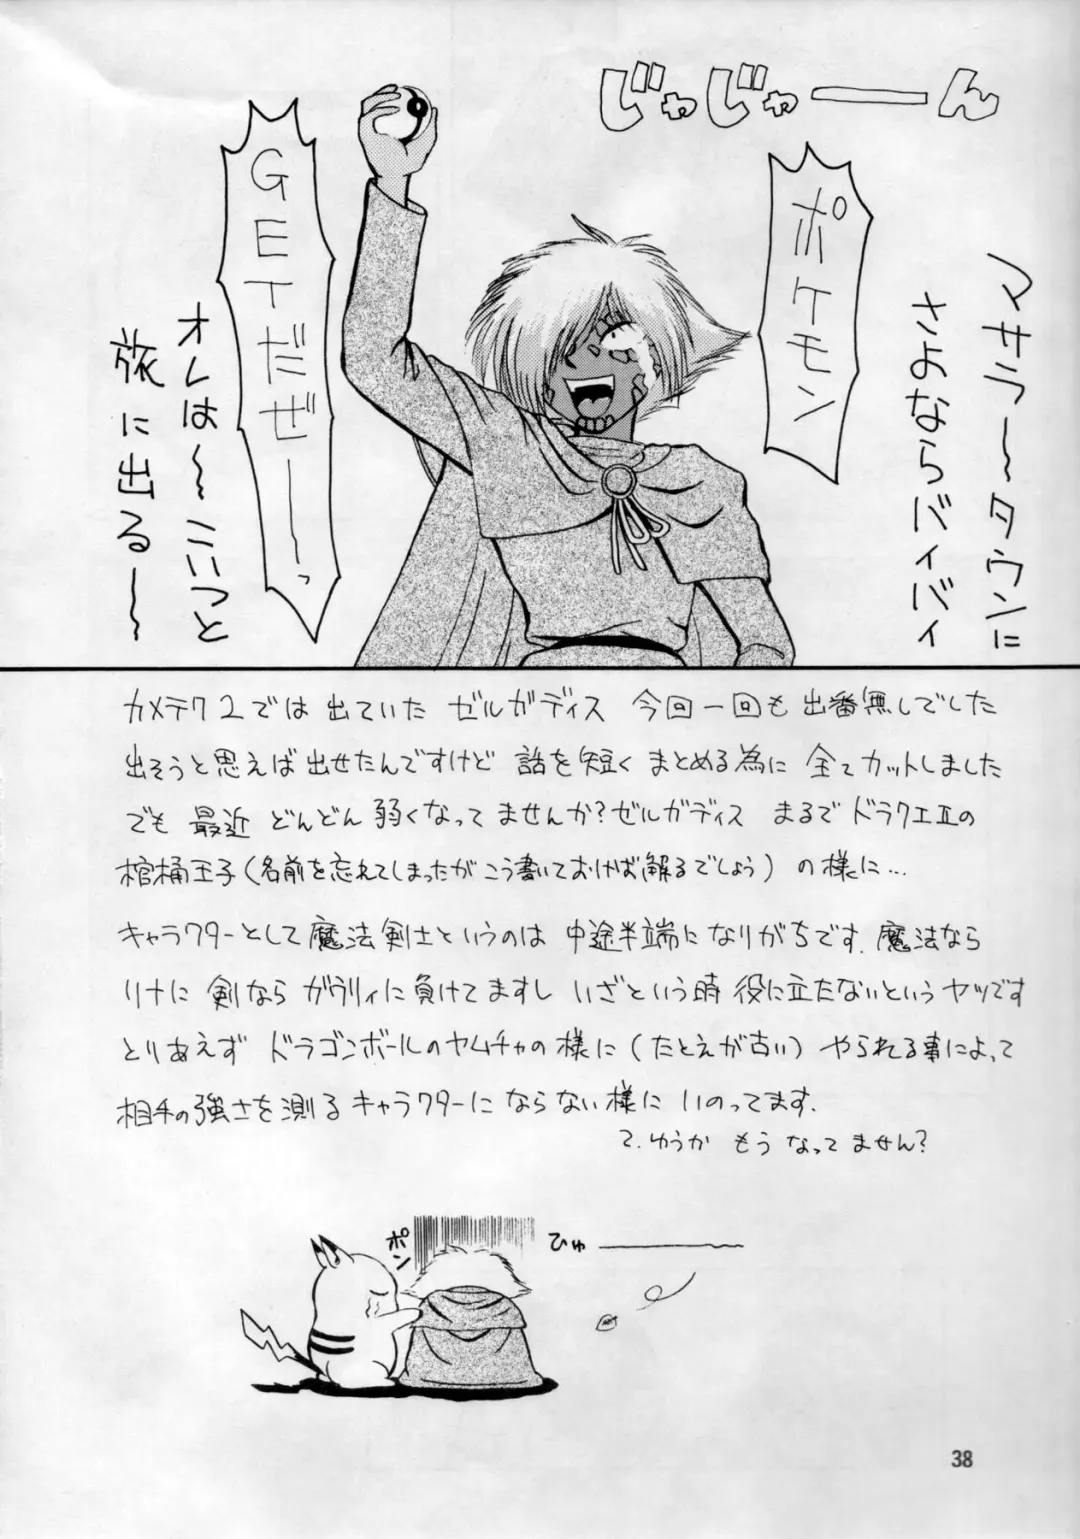 じゃじゃーーん
ポケモン
GETだぜーーっ
マサラ〜タウンに
さよならバイバイ
オレは〜こいつと
旅に出る〜
カメテク2では出ていた ゼルガディス 今回一回も出番無しでした
出そうと思えば出せたんですけど 話を短くまとめる為に 全てカットしました
でも 最近 どんどん弱くなってませんか?ゼルガディス まるでドラクエⅡの
棺桶王子(名前を忘れてしまったがこう書いておけば解るでしょう)の様に…
キャラクターとして魔法剣士というのは 中途半端になりがちです.魔法なら
リナに 剣なら ガウリィに負けてますし いざという時 役に立たないというヤツです
とりあえず ドラゴンボールのヤムチャの様に(たとえが古い) やられる事によって
相手の強さを測るキャラクターにならない様に いのってます.
て.ゆうか もう なってません?
ポン
ひゅーーー
38